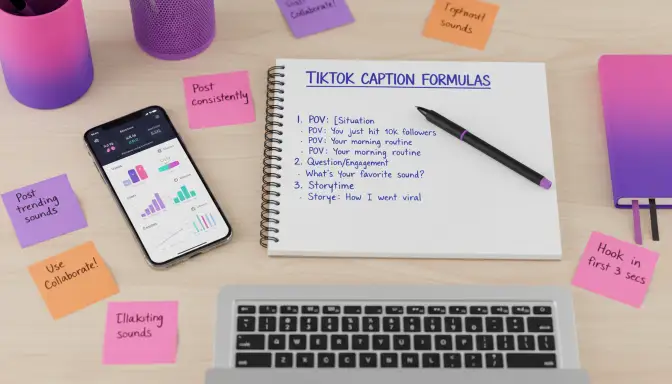 Collaborate!
sounds
Post
consistently
TIKTOK CAPTION FORMULAS
1. POV: [Situation
- POV: You just hit 10k followers
- POV: Your morning routine
- POV: Your morning routine
2. Question/Engagement
- What's your favorite sound?
3. Storytime
- Storye: How I went viral
Post
trending
sounds
Use
Collaborate!
sounds
Hook in
first 3 secs